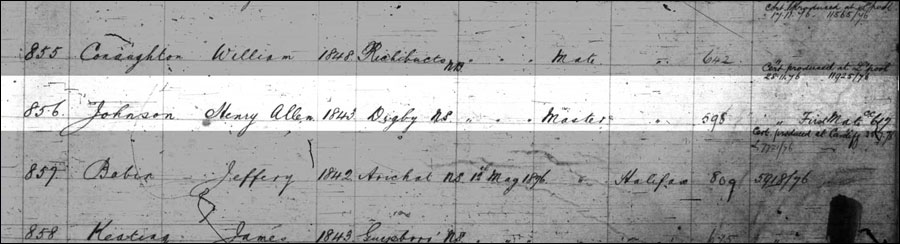 Cert. produced at L'pool
17.11.76 11565/76
855 Conaughton William 1848 Richibucto NB. " " Mate " 642
Cert. produced at L'pool
25.11.76 11925/76
856 Johnson Henry Allen 1843 Digby N.S. " " Master " 598 " First Mate
Cert. produced at Cardiff
857 Bobin Jeffery 1842 Arichat N.S. 1st May 1876 " Halifax 809 5918/76
858 Keating James 1843 Guysboro' N.S.